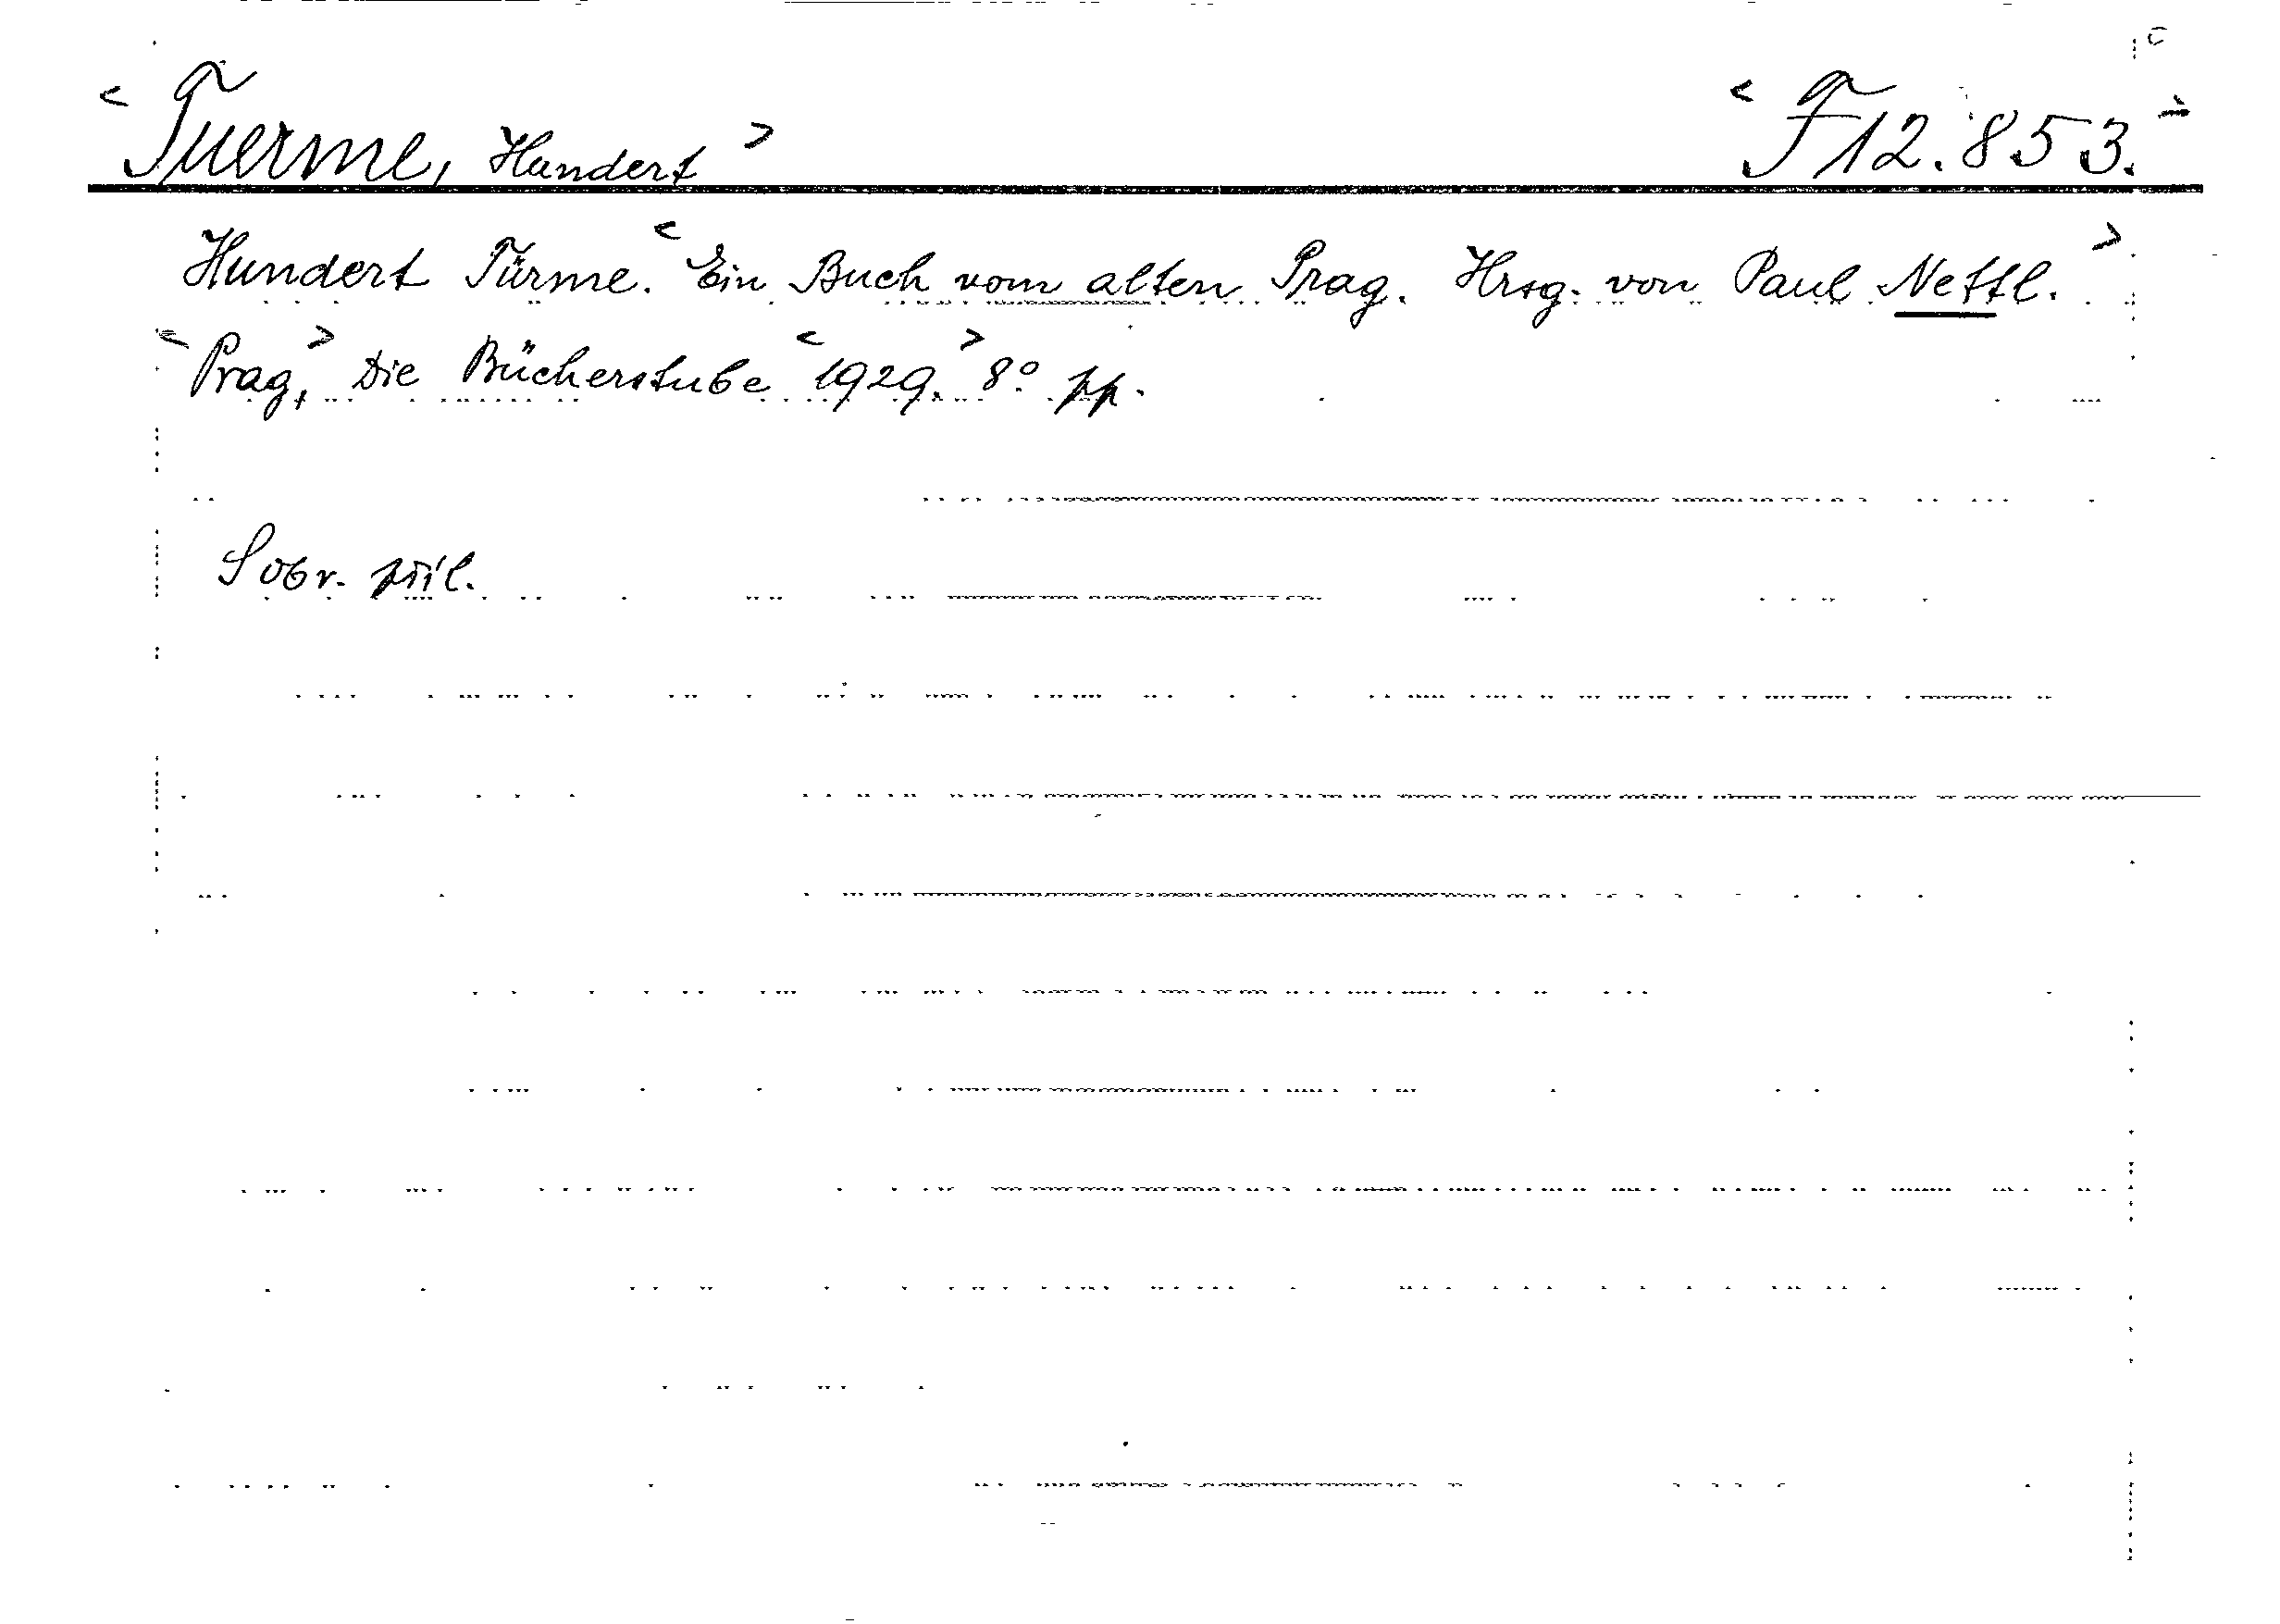 < Tuerme, Hundert > < F 12.853. >
Hundert Türme. < Ein Buch vom alten Prag. Hrsg. von Paul Nettl. >
< Prag, > Die Bücherstube < 1929. > 8° pp.
Sobr. příl.